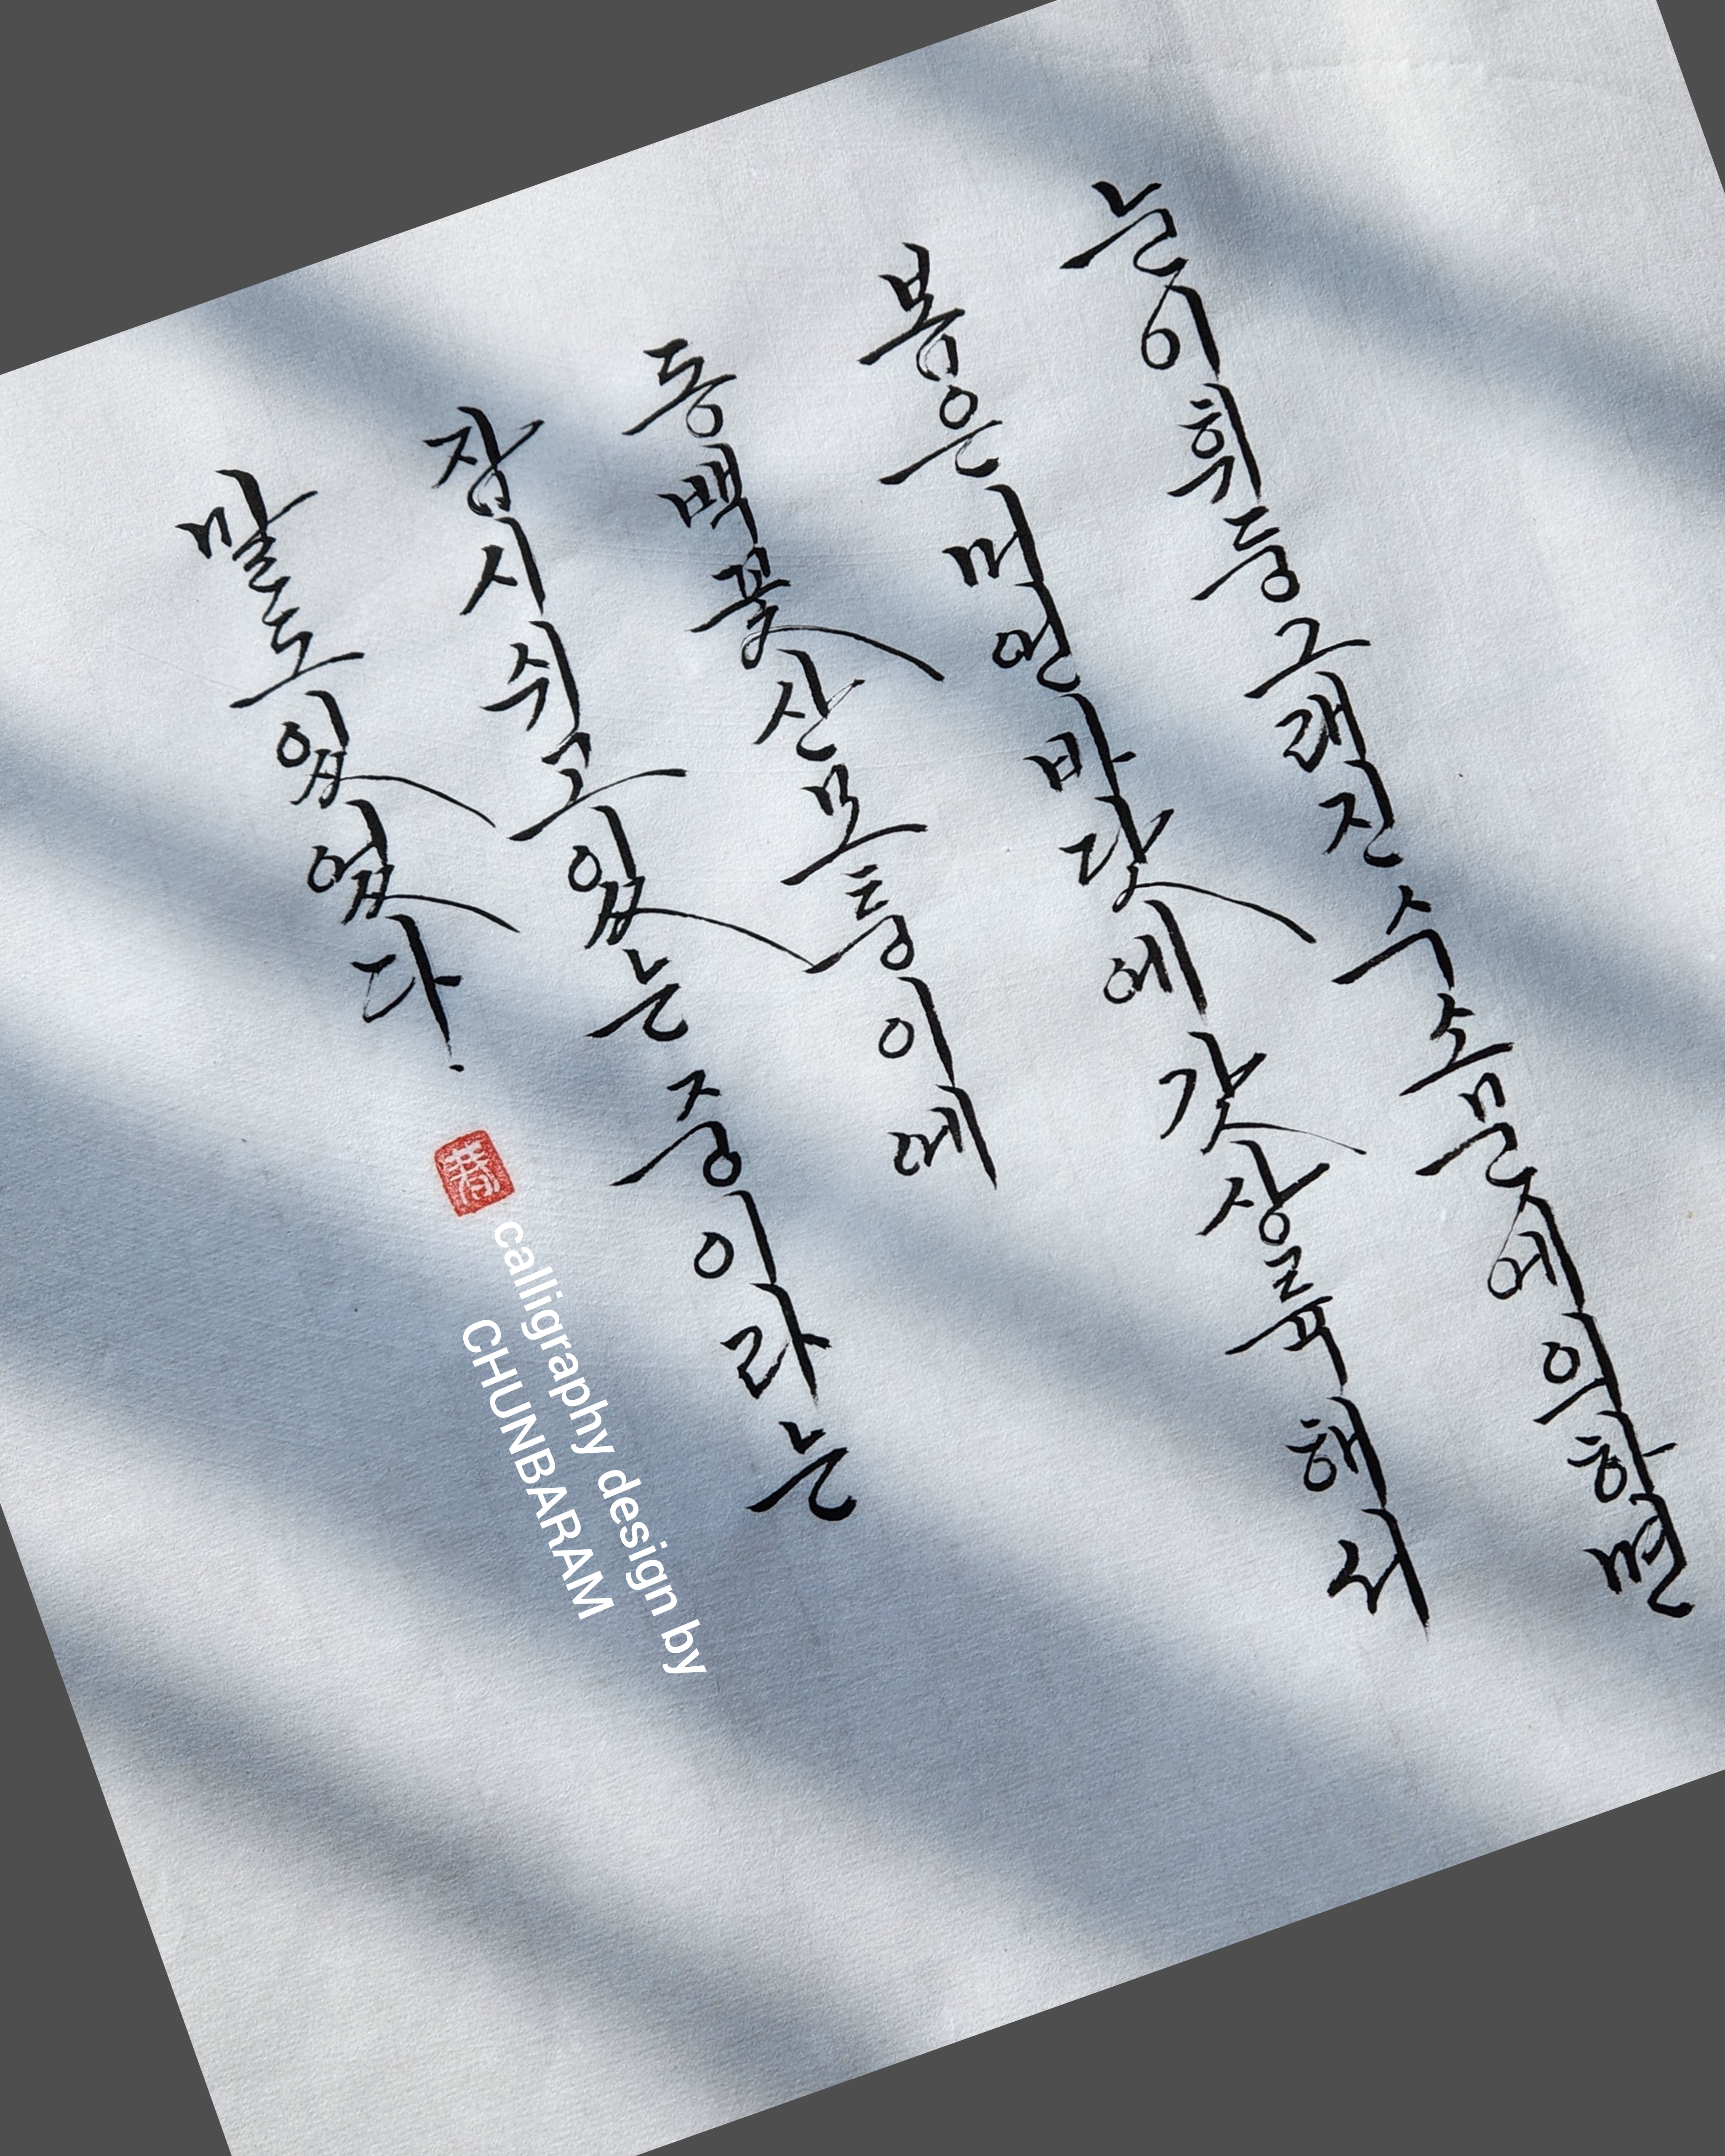 눈이 휘둥그래진 수소문에 의하면
봄은 머언 바닷에 갓 상륙해서
동백꽃 산모퉁이에
잠시 쉬고 있는 중이라는
말도 있었다.
calligraphy design by
CHUNBARAM